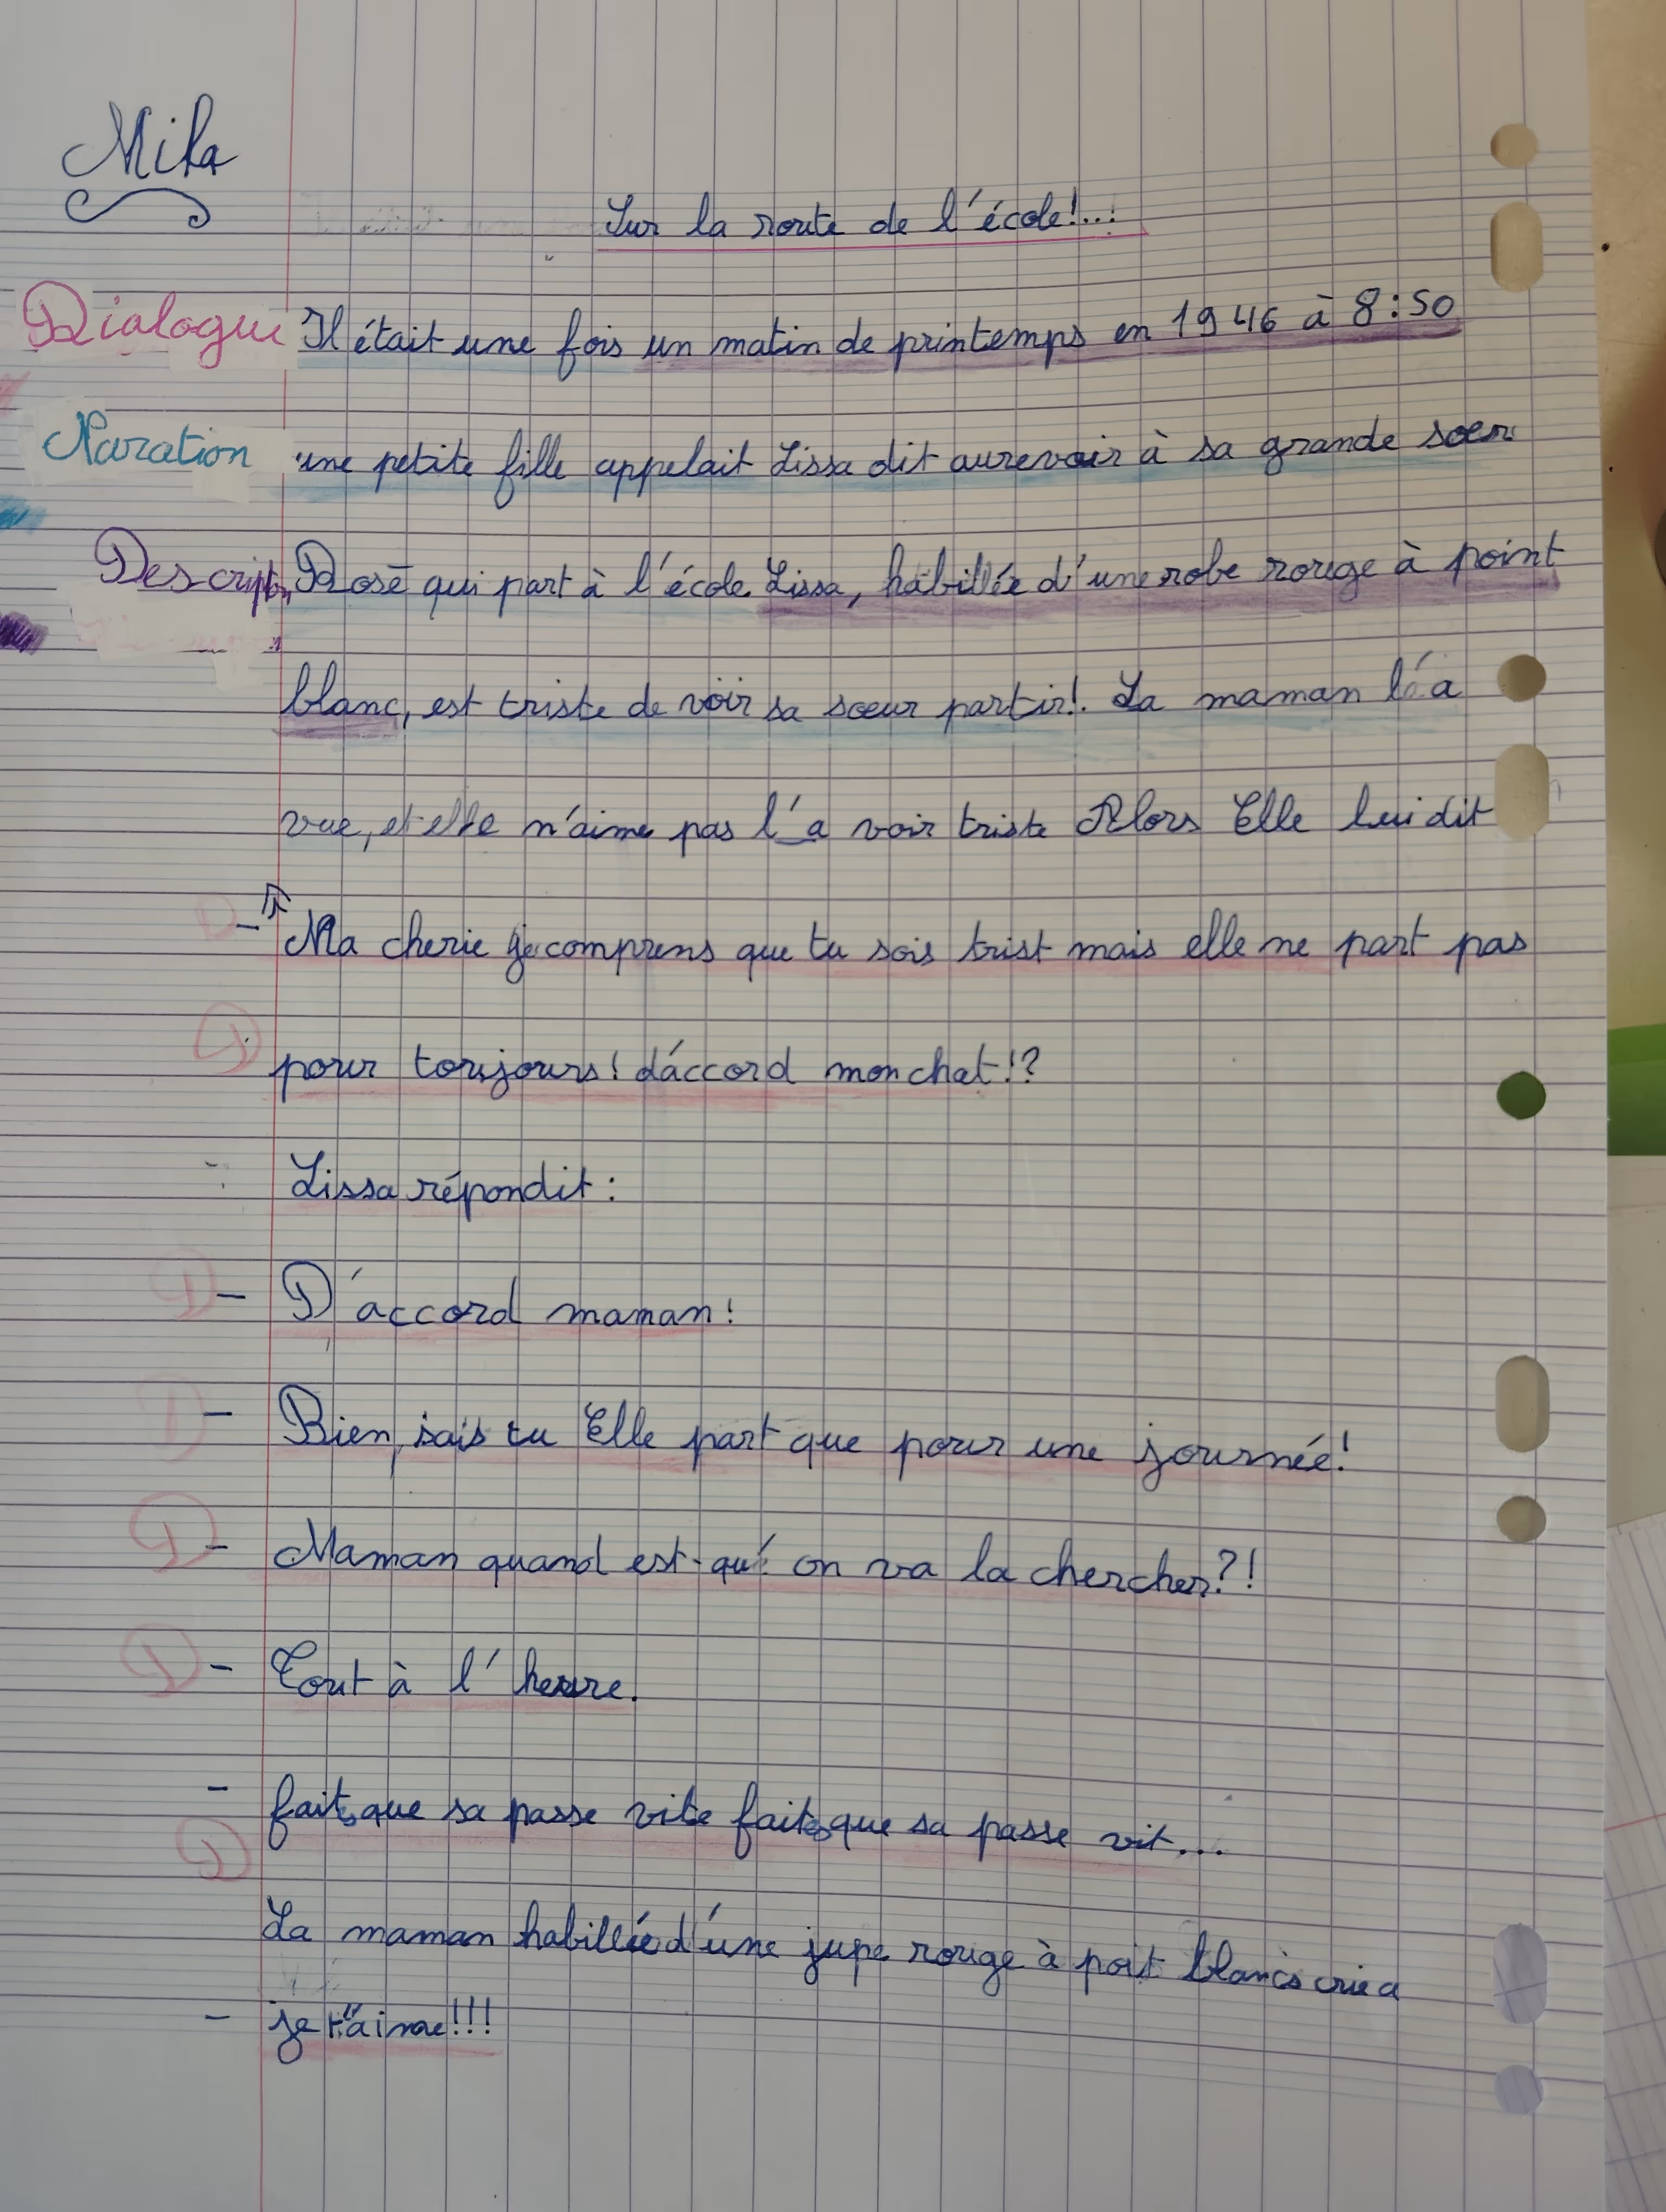 Mila
Sur la route de l'école!...
Dialogue Il était une fois un matin de printemps en 1946 à 8:50
Naration une petite fille appelait Lissa dit aurevoir à sa grande soeur
Description Rose qui part à l'école. Lissa, habillée d'une robe rouge à point
blanc, est triste de voir sa soeur partir!. La maman l'a
vue, et elle n'aime pas l'a voir triste Alors Elle lui dit
- Ma cherie je comprens que tu sois trist mais elle ne part pas
D pour toujours! d'accord mon chat!?
Lissa répondit:
D - D'accord maman!
D - Bien, sais tu Elle part que pour une journée!
D - Maman quand est-qu' on va la chercher?!
D - Tout à l'heure.
- faites que sa passe vite faites que sa passe vit...
D
La maman habillée d'une jupe rouge à poit blancs cria
- je t'aime!!!